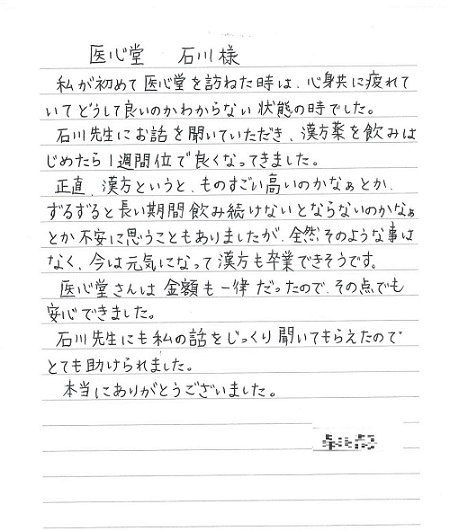 医心堂　石川様
私が初めて医心堂を訪ねた時は、心身共に疲れて
いてどうして良いのかわからない状態の時でした。
石川先生にお話を聞いていただき、漢方薬を飲みは
じめたら1週間位で良くなってきました。
正直、漢方というと、ものすごい高いのかなぁとか、
ずるずると長い期間飲み続けないとならないのかなぁ
とか不安に思うこともありましたが、全然そのような事は
なく、今は元気になって漢方も卒業できそうです。
医心堂さんは金額も一律だったので、その点でも
安心できました。
石川先生にも私の話をじっくり聞いてもらえたので
とても助けられました。
本当にありがとうございました。